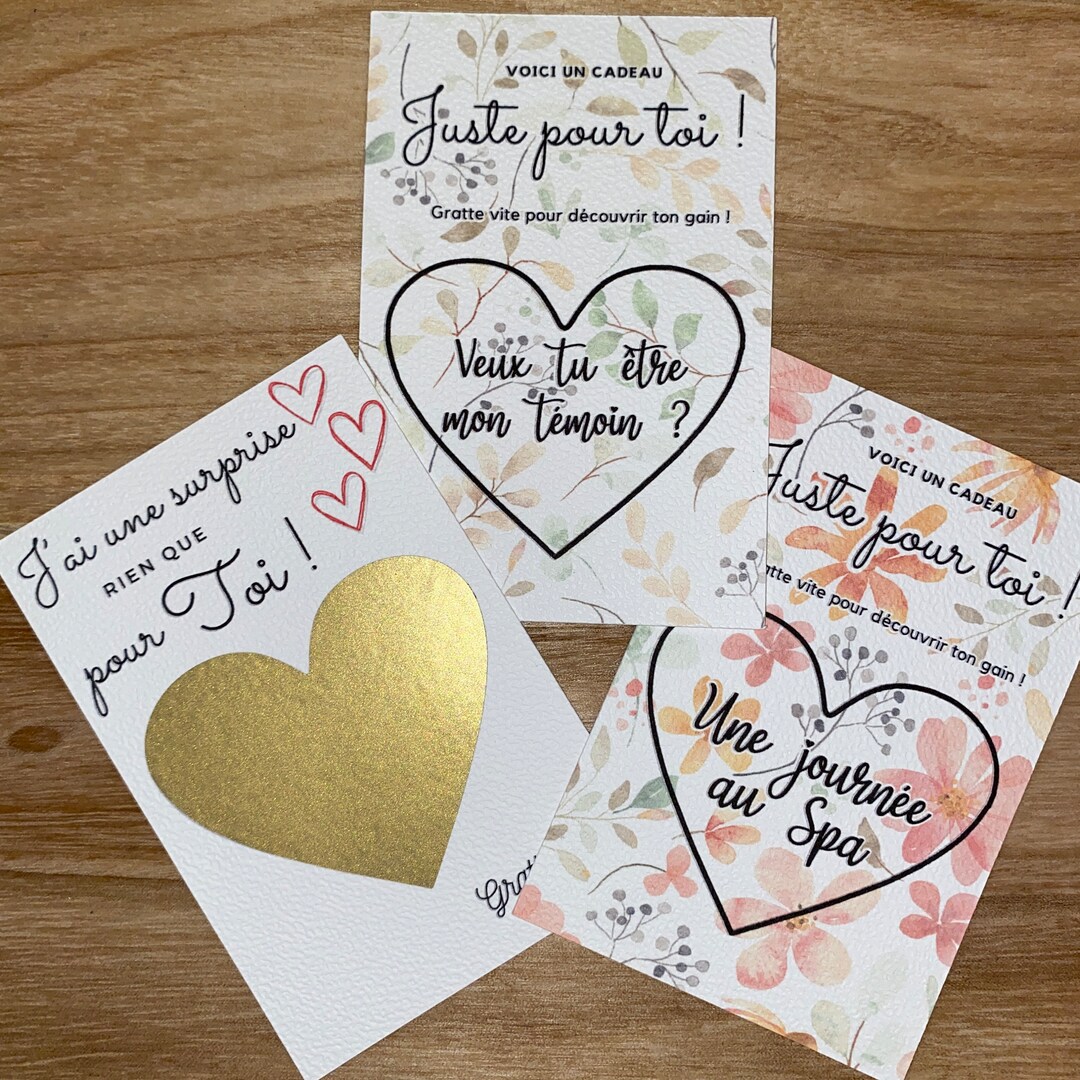 VOICI UN CADEAU
Juste pour toi !
Gratte vite pour découvrir ton gain !
Veux tu être
mon témoin ?
J'ai une surprise
RIEN QUE
pour Toi !
VOICI UN CADEAU
Juste pour toi !
vite pour découvrir ton gain !
Une journée
au Spa